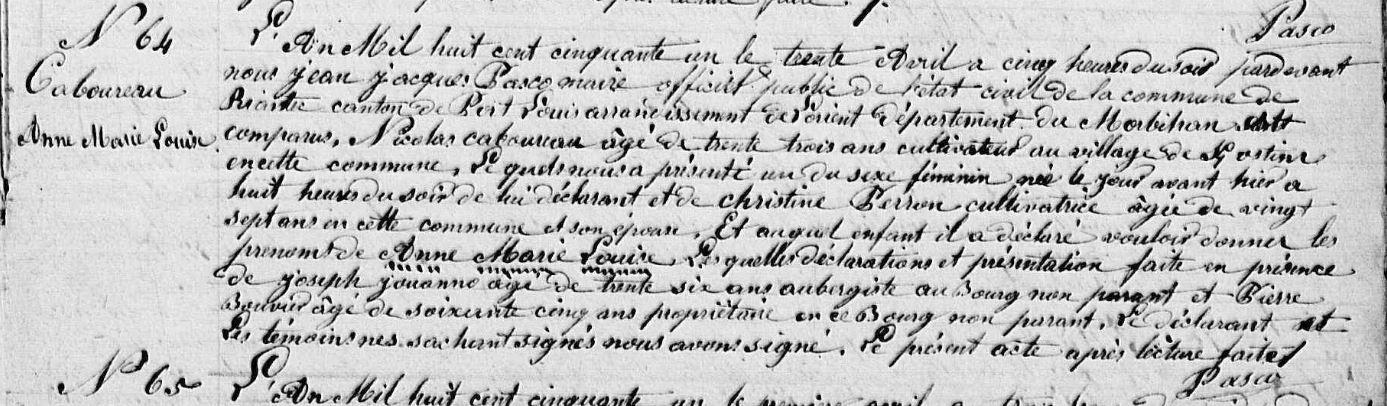 Pasco
N° 64
Caboureau
Anne Marie Louise
L'An Mil huit cent cinquante un le trente Avril a cinq heures du soir pardevant
nous jean jacques Pasco maire officiel public de l'état civil de la commune de
Riantec canton de Port Louis arrondissement de Lorient département du Morbihan
comparus, Nicolas caboureau âgé de trente trois ans cultivateur au village de
en cette commune, Le quel nous a présenté un du sexe féminin née le jour avant hier a
huit heures du soir de lui déclarant et de christine Perron cultivatrice âgée de vingt
sept ans en cette commune et son épouse, Et auquel enfant il a déclaré vouloir donner les
prenoms de Anne Marie Louise Les quelles déclarations et présentation faite en présence
de joseph jouanno âgé de trente six ans aubergiste au Bourg non parant et Pierre
Bouvier âgé de soixante cinq ans propriétaire en ce Bourg non parant, Le déclarant et
Les témoins nes sachant signés nous avons signé, Le présent acte après lecture faite
Pasco
N° 65
L'An Mil huit cent cinquante un le